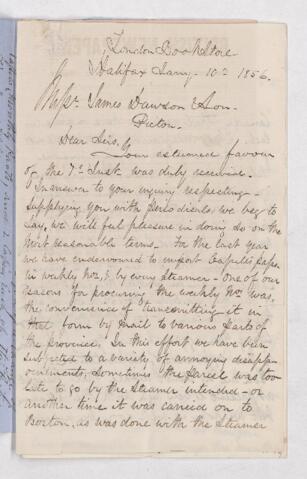 London Book Store
Halifax Jany. 10th 1856.
Messrs. James Dawson & Son
Pictou.
Dear Sirs.
Your esteemed favour
of the 7th Inst. was duly received.
In answer to your inquiry respecting
supplying you with Periodicals, we beg to
say, we will feel pleasure in doing so on the
most reasonable terms. For the last year
we have endeavoured to import Cassells paper
in weekly Nos. by every Steamer - One of our
reasons for procuring the weekly Nos. was,
the convenience of transmitting it in
that form by mail to various parts of
the province. In this effort we have been
subjected to a variety of annoying disapp-
ointments, sometimes the parcel was too
late to go by the Steamer intended - or
another time it was carried on to
Boston, as was done with the Steamer